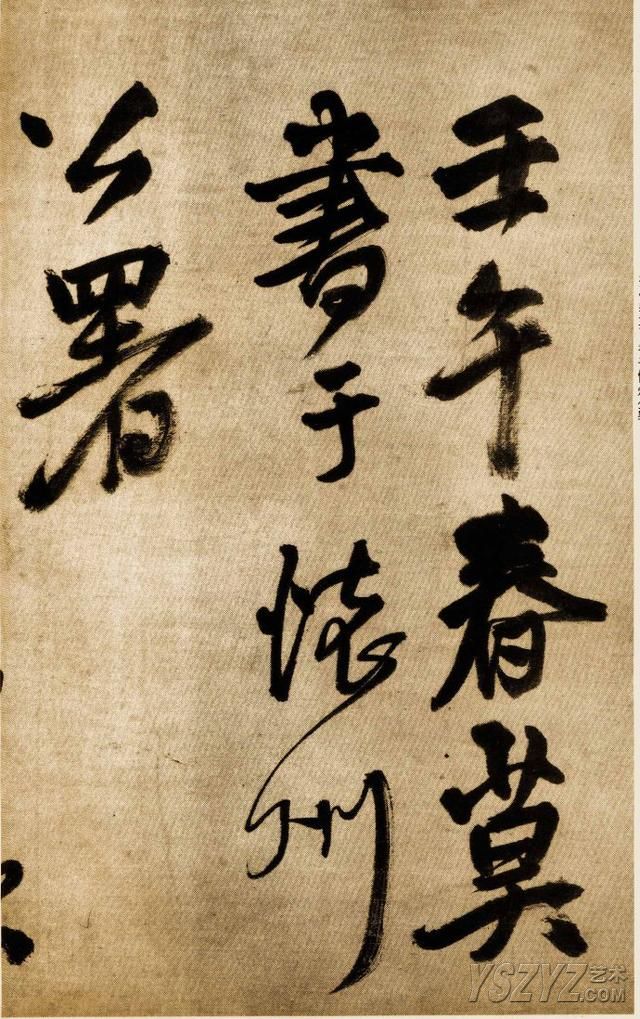 壬午春莫
書于懐州
公署
YSZYZ艺术
.COM